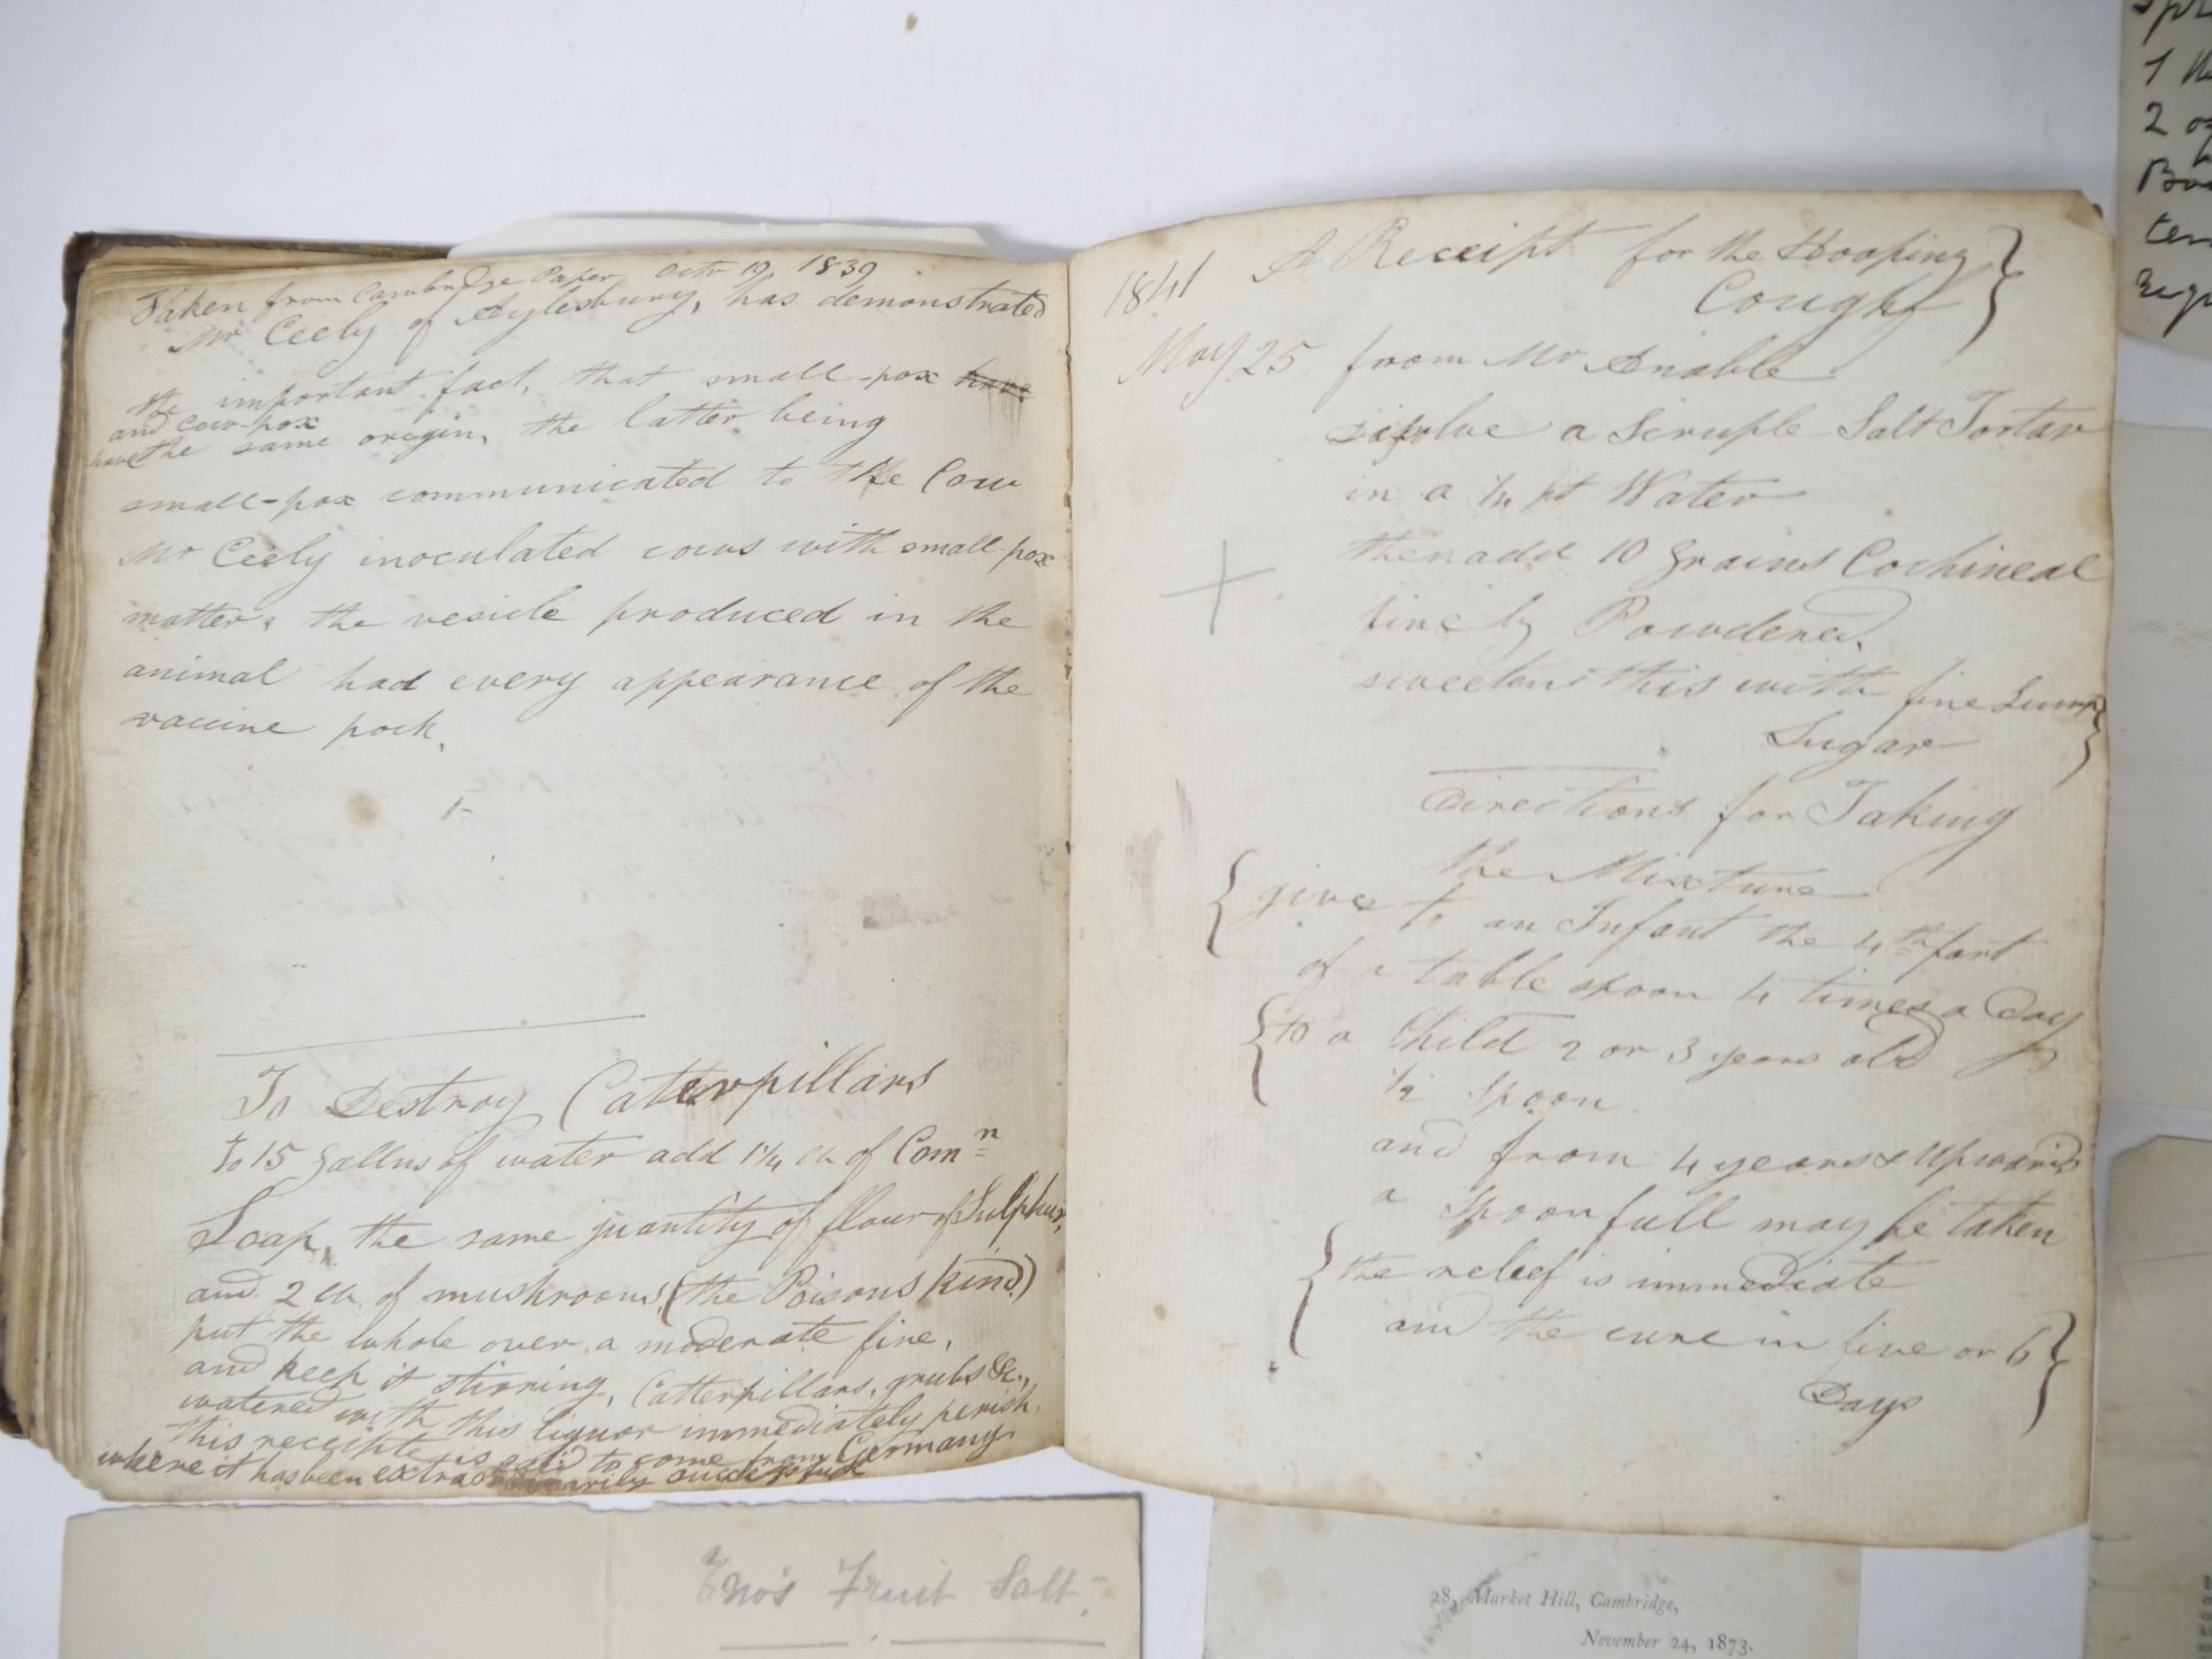 Taken from Cambridge Paper, Octr 19, 1839
Mr Ceely of Aylesbury, has demonstrated
the important fact, that small-pox have
and Cow-pox
have the same origin, the latter being
small-pox communicated to the Cow
Mr Ceely inoculated cows with small-pox
matter, the vesicle produced in the
animal had every appearance of the
vaccine pock,
To Destroy Catterpillars
to 15 gallns of water add 1¼ of Comn
Soap, the same quantity of flour of Sulphur,
and 2 of mushrooms, (the Poisons kind)
put the whole over a moderate fire,
and keep it stirring, Catterpillars, grubs &c.,
watered with this liquor immediately perish.
this receipte is said to come from Germany
where it has been extraordinarily successful
1841 A Receipt for the Hooping
Cough
May 25 from Mr Anable
disolve a Scruple Salt Tartar
in a ¼ pt Water
then add 10 grains Cochineal
finely Powdered,
sweeten this with fine Lump
Sugar
Directions for Taking
the Mixture
give to an Infant the 4th part
of a table spoon 4 times a Day
to a Child 2 or 3 years old
½ spoon
and from 4 years & Upwards
a Spoonfull may be taken
the relief is immediate
and the cure in five or 6
Days
Eno's Fruit Salt.
28, Market Hill, Cambridge,
November 24, 1873.
1
2